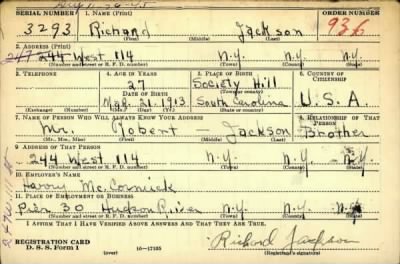 SERIAL NUMBER 1. NAME (Print) ORDER NUMBER
3293 Richard Jackson 936
(First) (Middle) (Last)
2. ADDRESS (Print)
244 West 114 N.Y. N.Y. N.Y.
(Number and street or R. F. D. number) (Town) (County) (State)
3. TELEPHONE 4. AGE IN YEARS 5. PLACE OF BIRTH 6. COUNTRY OF CITIZENSHIP
27 Society Hill
DATE OF BIRTH (Town or county)
21, 1913 South Carolina U.S.A.
(Exchange) (Number) (Mo.) (Day) (Yr.) (State or country)
7. NAME OF PERSON WHO WILL ALWAYS KNOW YOUR ADDRESS 8. RELATIONSHIP OF THAT PERSON
Mr. Robert — Jackson Brother
(Mr., Mrs., Miss) (First) (Middle) (Last)
9. ADDRESS OF THAT PERSON
244 West 114 N.Y. N.Y. N.Y.
(Number and street or R. F. D. number) (Town) (County) (State)
10. EMPLOYER'S NAME
Harry McCormick
11. PLACE OF EMPLOYMENT OR BUSINESS
Pier 30 Hudson River N.Y. N.Y.
(Number and street or R. F. D. number) (Town) (County) (State)
I AFFIRM THAT I HAVE VERIFIED ABOVE ANSWERS AND THAT THEY ARE TRUE.
REGISTRATION CARD
D. S. S. Form 1 16—17105 Richard Jackson
(over) (Registrant's signature)